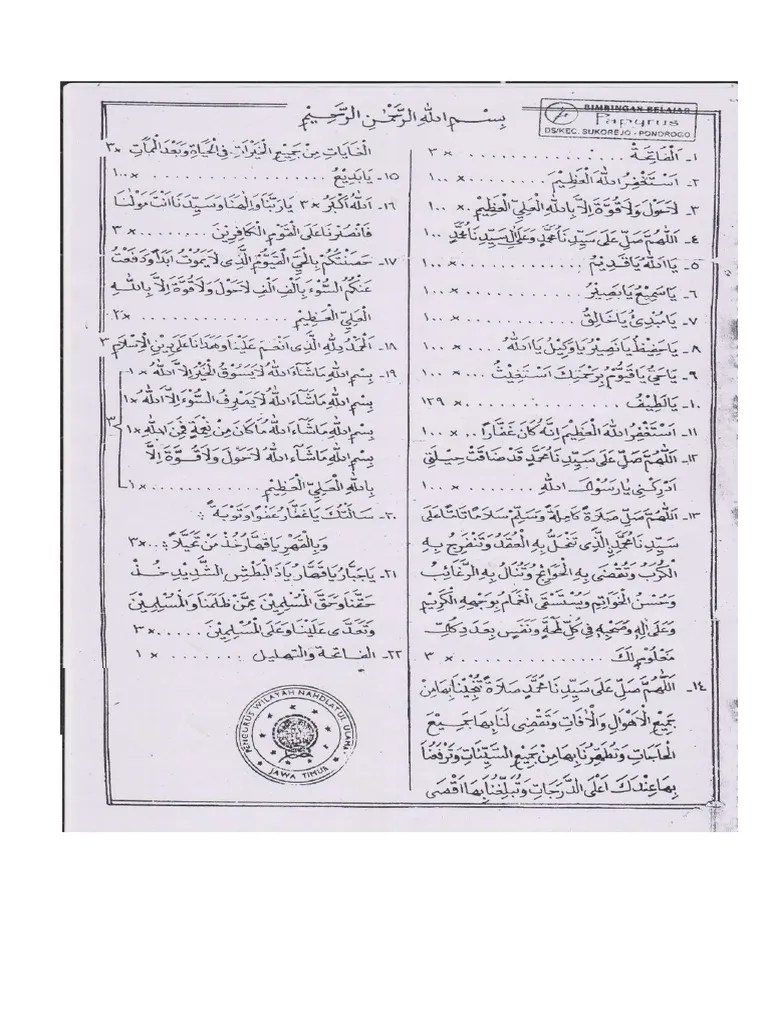 بِسْمِ اللهِ الرَّحْمٰنِ الرَّحِيْمِ
BIMBINGAN BELAJAR
Papyrus
DS/KEC. SUKOREJO - PONOROGO
١- اَلْفَاتِحَةْ . . . . . . . . . . . . × ٣
٢- اَسْتَغْفِرُ اللهَ الْعَظِيْمَ . . . . . . × ١٠٠
٣- لَاحَوْلَ وَلَا قُوَّةَ اِلَّا بِاللهِ الْعَلِيِّ الْعَظِيْمِ × ١٠٠
٤- اَللّٰهُمَّ صَلِّ عَلَى سَيِّدِنَا مُحَمَّدٍ وَعَلَى اٰلِ سَيِّدِنَا مُحَمَّدٍ ١٠٠
٥- يَا اَللهُ يَا قَدِيْمُ . . . . . . . . . × ١٠٠
٦- يَا سَمِيْعُ يَا بَصِيْرُ . . . . . . . . × ١٠٠
٧- يَا مُبْدِئُ يَا خَالِقُ . . . . . . . . × ١٠٠
٨- يَا حَفِيْظُ يَا نَصِيْرُ يَا وَكِيْلُ يَا اَللهُ . . . . × ١٠٠
٩- يَا حَيُّ يَا قَيُّوْمُ بِرَحْمَتِكَ اَسْتَغِيْثُ . . . × ١٠٠
١٠- يَا لَطِيْفُ . . . . . . . . . . . × ١٢٩
١١- اَسْتَغْفِرُ اللهَ الْعَظِيْمَ اِنَّهُ كَانَ غَفَّارًا . . . × ١٠٠
١٢- اَللّٰهُمَّ صَلِّ عَلَى سَيِّدِنَا مُحَمَّدٍ قَدْ ضَاقَتْ حِيْلَتِى
اَدْرِكْنِى يَا رَسُوْلَ اللهِ . . . . . . . × ١٠٠
١٣- اَللّٰهُمَّ صَلِّ صَلَاةً كَامِلَةً وَسَلِّمْ سَلَامًا تَامًّا عَلَى
سَيِّدِنَا مُحَمَّدِنِ الَّذِى تَنْحَلُّ بِهِ الْعُقَدُ وَتَنْفَرِجُ بِهِ
الْكُرَبُ وَتُقْضَى بِهِ الْحَوَائِجُ وَتُنَالُ بِهِ الرَّغَائِبُ
وَحُسْنُ الْخَوَاتِمِ وَيُسْتَسْقَى الْغَمَامُ بِوَجْهِهِ الْكَرِيْمِ
وَعَلَى اٰلِهِ وَصَحْبِهِ فِى كُلِّ لَمْحَةٍ وَنَفَسٍ بِعَدَدِ كُلِّ
مَعْلُوْمٍ لَكَ . . . . . . . . . . × ٣
١٤- اَللّٰهُمَّ صَلِّ عَلَى سَيِّدِنَا مُحَمَّدٍ صَلَاةً تُنْجِيْنَا بِهَا مِنْ
جَمِيْعِ الْاَهْوَالِ وَالْاٰفَاتِ وَتَقْضِى لَنَا بِهَا جَمِيْعَ
الْحَاجَاتِ وَتُطَهِّرُنَا بِهَا مِنْ جَمِيْعِ السَّيِّئَاتِ وَتَرْفَعُنَا
بِهَا عِنْدَكَ اَعْلَى الدَّرَجَاتِ وَتُبَلِّغُنَا بِهَا اَقْصَى
الْغَايَاتِ مِنْ جَمِيْعِ الْخَيْرَاتِ فِى الْحَيَاةِ وَبَعْدَ الْمَمَاتِ ×٣
١٥- يَا بَدِيْعُ . . . . . . . . . . . ×١٠٠
١٦- اَللهُ اَكْبَرُ ×٣ يَا رَبَّنَا وَاِلٰهَنَا وَسَيِّدَنَا اَنْتَ مَوْلَانَا
فَانْصُرْنَا عَلَى الْقَوْمِ الْكَافِرِيْنَ . . . . . × ٣
١٧- حَصَّنْتُكُمْ بِالْحَيِّ الْقَيُّوْمِ الَّذِى لَا يَمُوْتُ اَبَدًا وَدَفَعْتُ
عَنْكُمُ السُّوْءَ بِاَلْفِ اَلْفِ لَاحَوْلَ وَلَا قُوَّةَ اِلَّا بِاللهِ
الْعَلِيِّ الْعَظِيْمِ . . . . . . . . . . ×٢
١٨- اَلْحَمْدُ لِلهِ الَّذِى اَنْعَمَ عَلَيْنَا وَهَدَانَا عَلَى دِيْنِ الْاِسْلَامِ ٣
١٩- بِسْمِ اللهِ مَاشَاءَ اللهُ لَا يَسُوْقُ الْخَيْرَ اِلَّا اللهُ ×١
بِسْمِ اللهِ مَاشَاءَ اللهُ لَا يَصْرِفُ السُّوْءَ اِلَّا اللهُ ×١
بِسْمِ اللهِ مَاشَاءَ اللهُ مَا كَانَ مِنْ نِعْمَةٍ فَمِنَ اللهِ ×١
بِسْمِ اللهِ مَاشَاءَ اللهُ لَاحَوْلَ وَلَا قُوَّةَ اِلَّا
بِاللهِ الْعَلِيِّ الْعَظِيْمِ . . . . . . . . ×١
٣
٢٠- سَأَلْتُكَ يَا غَفَّارُ عَفْوًا وَتَوْبَةً
وَبِالْقَهْرِ يَا قَهَّارُ خُذْ مَنْ تَحَيَّلَا . . . ×٣
٢١- يَا جَبَّارُ يَا قَهَّارُ يَا ذَا الْبَطْشِ الشَّدِيْدِ خُذْ
حَقَّنَا وَحَقَّ الْمُسْلِمِيْنَ مِمَّنْ ظَلَمَنَا وَالْمُسْلِمِيْنَ
وَتَعَدَّى عَلَيْنَا وَعَلَى الْمُسْلِمِيْنَ . . . . . × ٣
٢٢- الفاتحة والتهليل . . . . . . . × ١
PENGURUS WILAYAH NAHDLATUL ULAMA
JAWA TIMUR